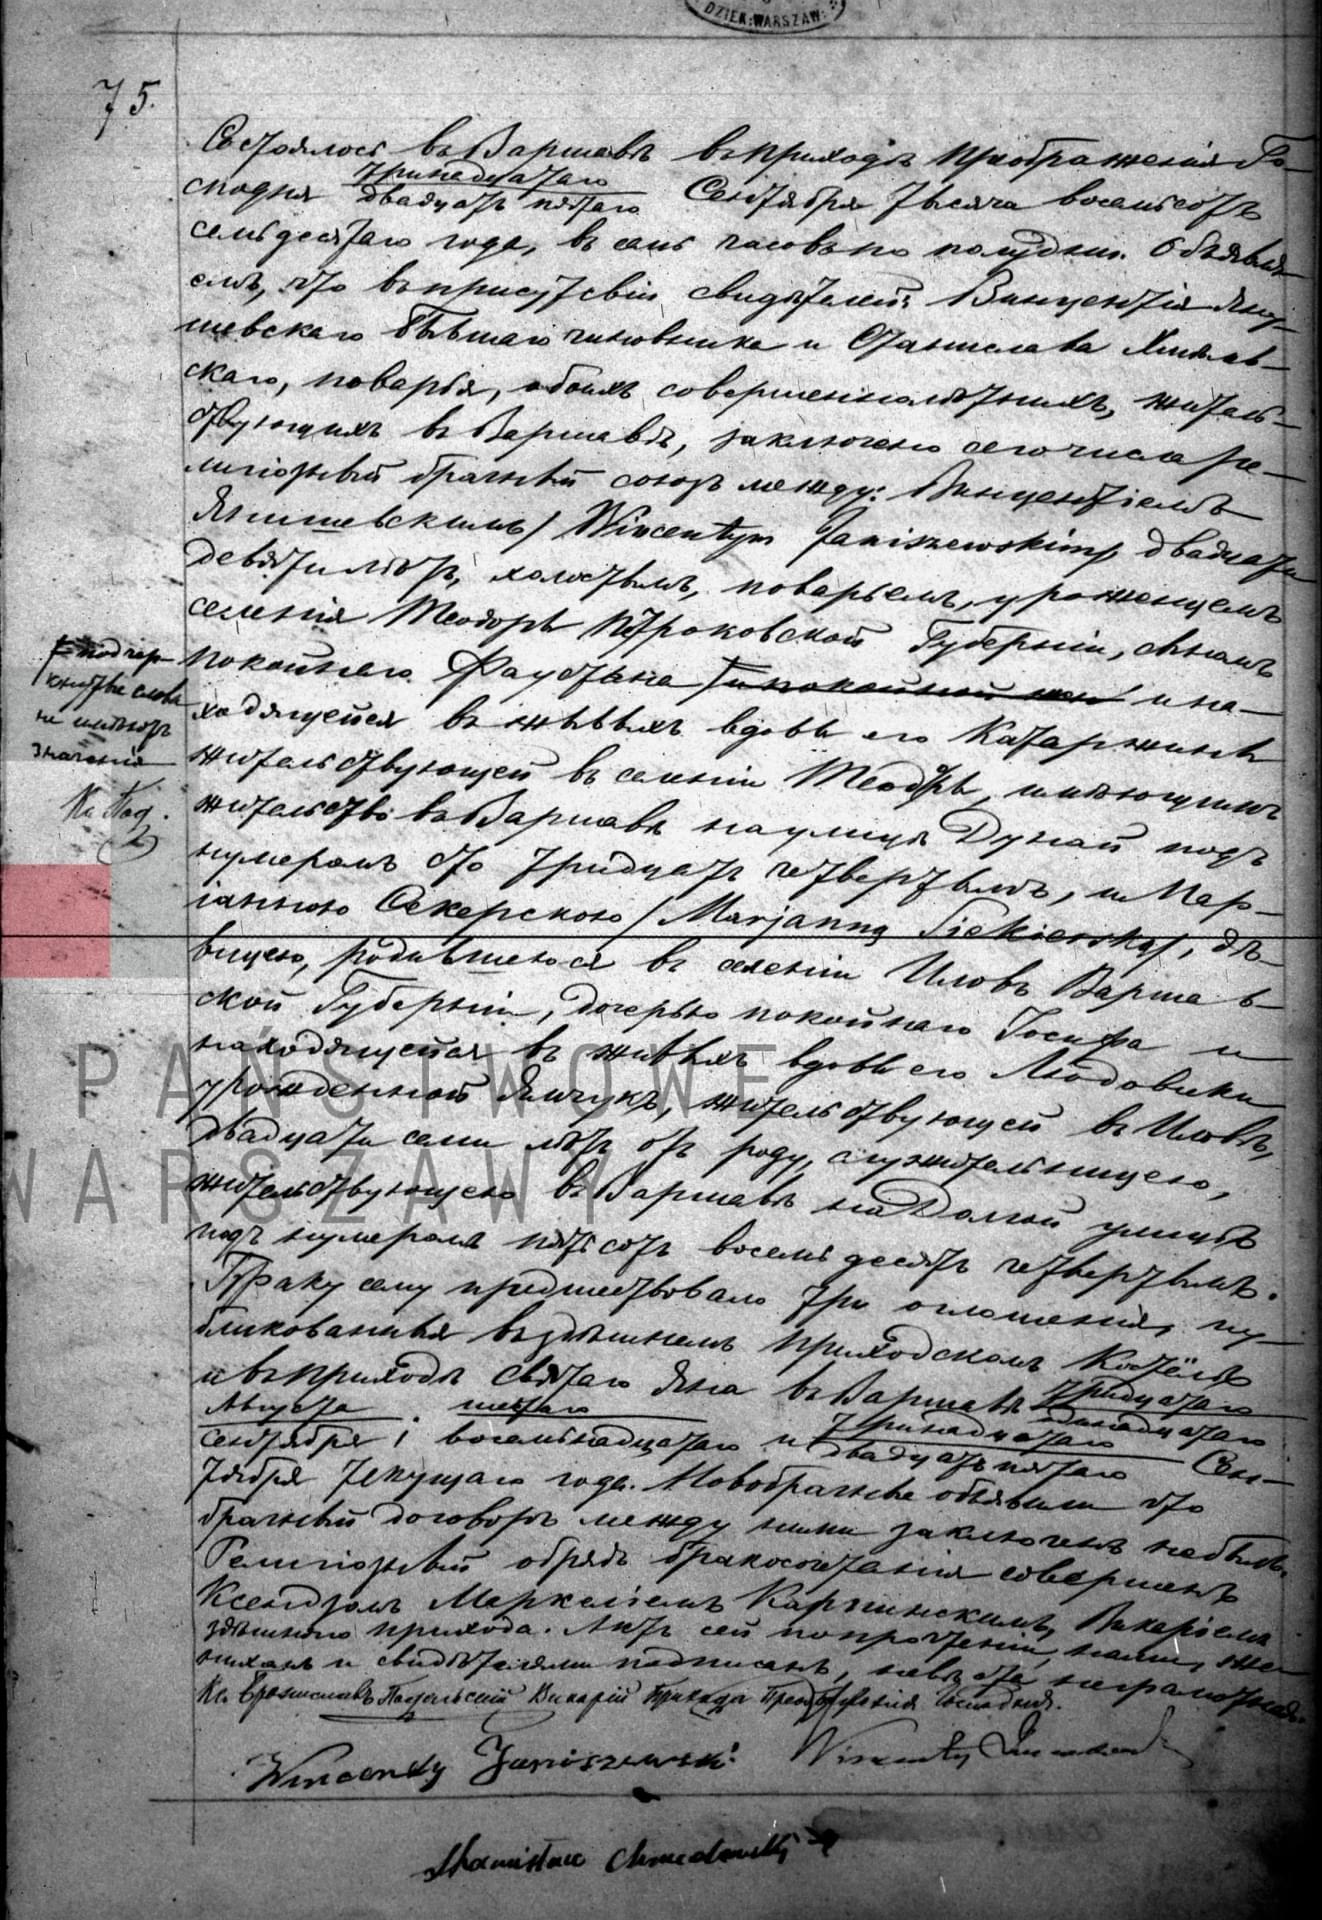 DZIEK. WARSZAW.
75.
Состоялось въ Варшавѣ въ приходѣ Преображенія Го-
сподня тринадцатаго
двадцать пятаго Сентября тысяча восемьсотъ
семьдесятаго года, въ семь часовъ по полудни. Объявля-
емъ, что въ присутствіи свидѣтелей: Винцентія
шевскаго бывшаго чиновника и Станислава Хмѣлев-
скаго, поварья, обоихъ совершеннолѣтнихъ, житель-
ствующихъ въ Варшавѣ, заключено сего числа ре-
лигіозный брачный союзъ между: Винцентіемъ
Янишевскимъ /Wincentym Janiszewskim/ двадцати
девяти лѣтъ, холостымъ, поварьемъ, урожденцемъ
селенія Теодоръ Петроковской Губерніи, сыномъ
покойнаго Фаустина и покойной жен и на-
ходящейся въ живыхъ вдовы его Катаржины
жительствующей въ селеніи Теодоръ, имѣющимъ
жительство въ Варшавѣ на улицѣ Дунай подъ
нумеромъ сто тридцать четвертымъ, и Мар-
іанною Секерскою /Marjanną Siekierską/, дѣ-
вицею, родившеюся въ селеніи Иловъ Варшав-
ской Губерніи, дочерью покойнаго Іосифа и
находящейся въ живыхъ вдовы его Людовики
урожденной Янчукъ, жительствующей въ Иловѣ,
двадцати семи лѣтъ отъ роду, служительницею,
жительствующею въ Варшавѣ на Долгой улицѣ
подъ нумеромъ пятьсотъ восемьдесятъ четвертымъ.
Браку сему предшествовало три оглашенія, пу-
бликованныя въ здѣшнемъ приходскомъ Костёлѣ
и въ приходѣ Святаго Яна въ Варшавѣ тридцатаго
Августа шестаго одинадцатаго
Сентября, восемнадцатаго и тринадцатаго
двадцать пятаго Сен-
тября текущаго года. Новобрачные объявили что
брачный договоръ между ними заключенъ не былъ.
Религіозный обрядъ бракосочетанія совершенъ
Ксендзомъ Маркеліемъ Карпинскимъ, Викаріемъ
здѣшняго прихода. Актъ сей по прочтеніи, нами, же-
нихомъ и свидѣтелями подписанъ, невѣста неграмотная.
Кс. Брониславъ Подъльскій Викарій Прихода Преображенія Господня.
Wincenty Janiszewski Wincenty
Stanisław Chmielewski
подчер-
кнутые слова
не имѣютъ
значенія
Кс. Под.
PAŃSTWOWE
WARSZAWY